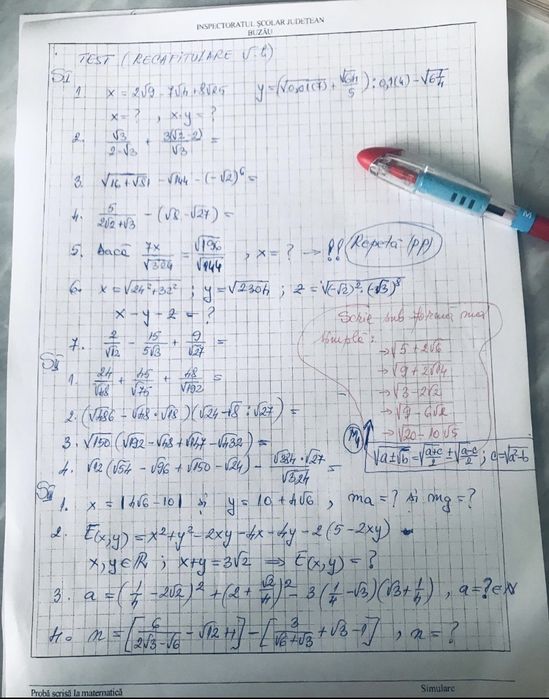 INSPECTORATUL ȘCOLAR JUDEȚEAN
BUZĂU
TEST (RECAPITULARE
SI
1. x = 2√9 - 7√4 + 8√25 y = (√0,01(7) + √64/5) : 0,1(4) - √6 1/4
x = ? , x·y = ?
2. √3/(2-√3) + 3(√3-2)/√3 =
3. √(16+√81) - √144 - (-√2)⁶ =
4. 5/(2√2+√3) - (√8 - √27) =
5. Dacă 7x/√324 = √196/√144 , x = ? → !! Repetă (PP)
6. x = √(24²+32²) ; y = √2304 ; z = √((-√3)²·(-√3)⁸)
x - y - z = ?
7. 2/√12 - 15/5√3 + 9/√27 =
Scrie sub formă mai
simplă:
→ √(5+2√6)
→ √(9+2√14)
→ √(3-2√2)
→ √(9-6√2)
→ √(20-10√5)
√(a±√b) = √((a+c)/2) ± √((a-c)/2) ; c = √(a²-b)
SII
1. 24/√48 + 45/√75 + 48/√192 =
2. (√486 - √48·√18)(√24 + √8 : √27) =
3. √150(√192 - √48 + √147 - √432) =
4. √12(√54 - √96 + √150 - √24) - √384·√27/√324 =
SIII
1. x = |4√6 - 10| și y = 10 + 4√6 , ma = ? și mg = ?
2. E(x,y) = x² + y² - 2xy - 4x - 4y - 2(5 - 2xy)
x, y ∈ ℝ ; x+y = 3√2 ⇒ E(x,y) = ?
3. a = (1/4 - 2√2)² + (2 + √2/4)² - 3(1/4 - √3)(√3 + 1/4) , a = ? ∈ N
4. n = [6/(2√3-√6) - √12 + 1] - [3/(√6+√3) + √3 - 1] , n = ?
Probă scrisă la matematică
Simulare